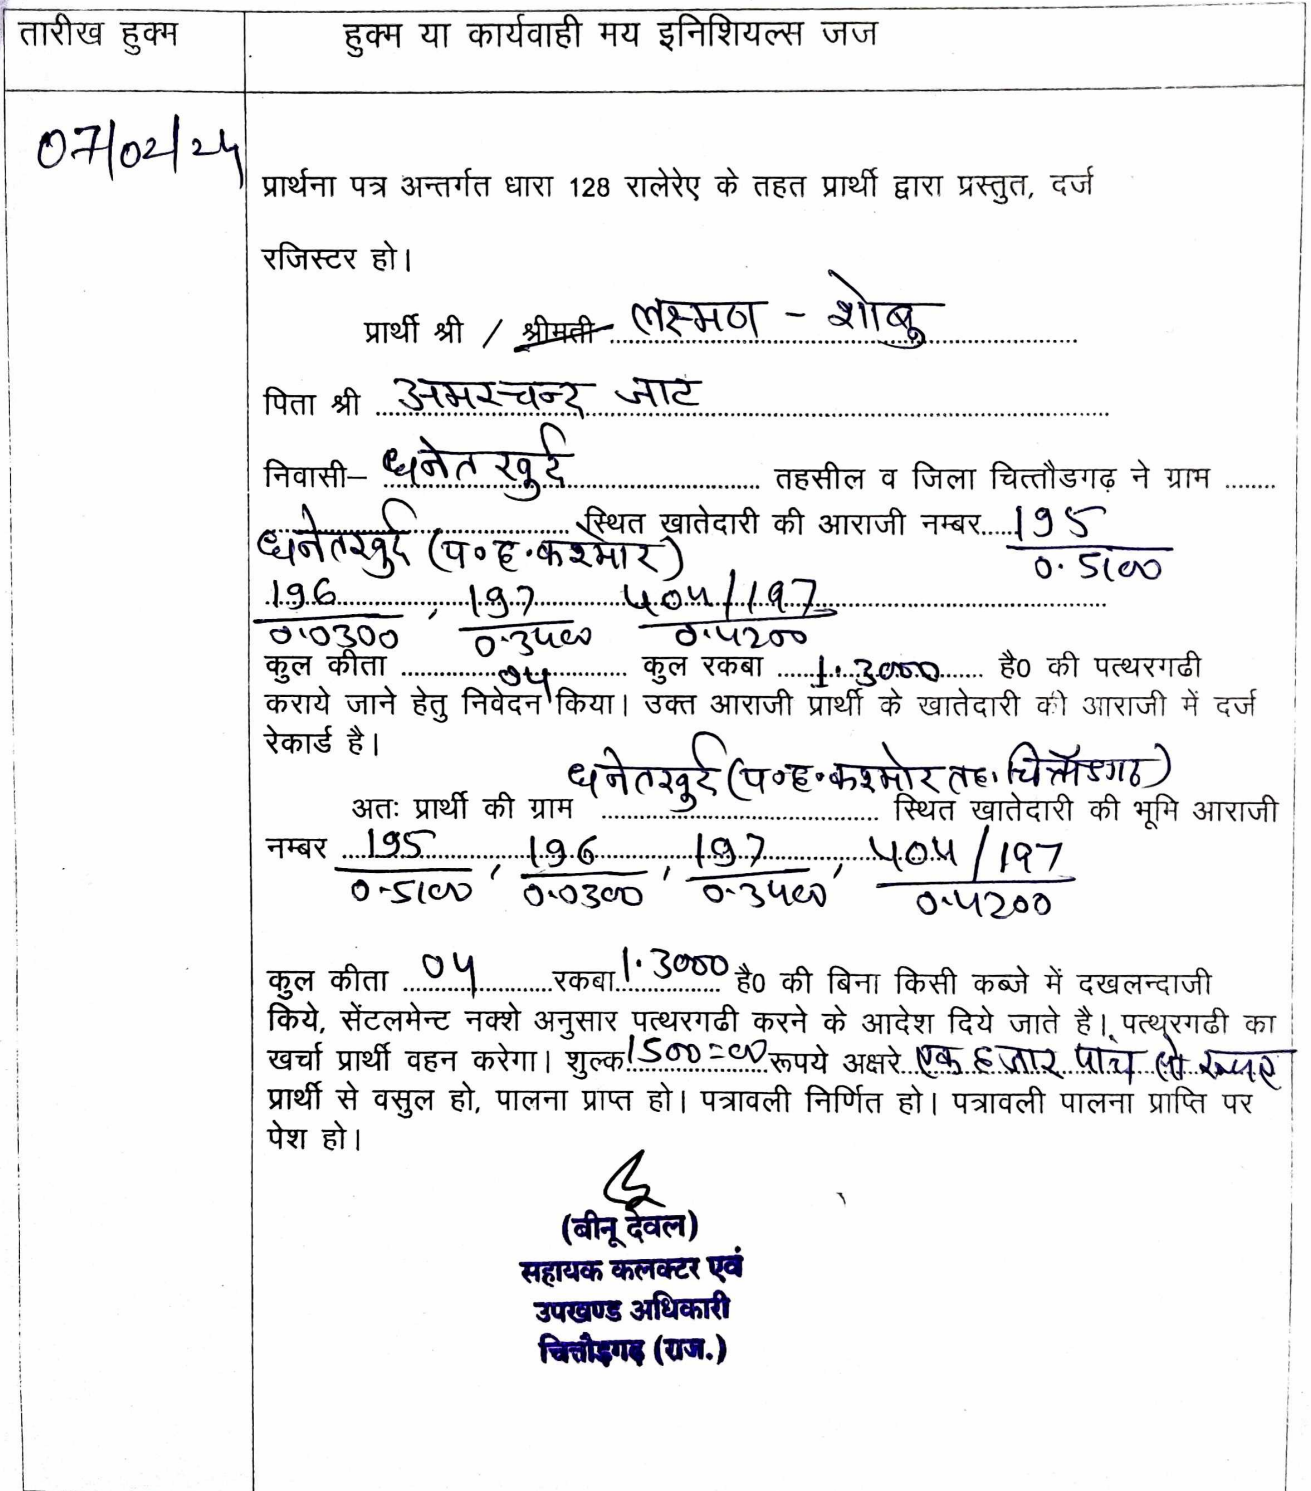 तारीख हुक्म
हुक्म या कार्यवाही मय इनिशियल्स जज
07/02/24
प्रार्थना पत्र अन्तर्गत धारा 128 रालेरेए के तहत प्रार्थी द्वारा प्रस्तुत, दर्ज
रजिस्टर हो।
प्रार्थी श्री / श्रीमती लक्ष्मण - शोबु
पिता श्री अमरचन्द जाट
निवासी– धनेत खुर्द तहसील व जिला चित्तौडगढ़ ने ग्राम
स्थित खातेदारी की आराजी नम्बर 195
धनेतखुर्द (प०ह०कश्मोर) 0.5100
196 , 197 404/197
0.0300 0.3400 0.4200
कुल कीता 04 कुल रकबा 1.3000 है0 की पत्थरगढी
कराये जाने हेतु निवेदन किया। उक्त आराजी प्रार्थी के खातेदारी की आराजी में दर्ज
रेकार्ड है।
धनेतखुर्द (प०ह०कश्मोर तह. चित्तौडगढ)
अतः प्रार्थी की ग्राम स्थित खातेदारी की भूमि आराजी
नम्बर 195 , 196 , 197 , 404/197
0.5100 0.0300 0.3400 0.4200
कुल कीता 04 रकबा 1.3000 है0 की बिना किसी कब्जे में दखलन्दाजी
किये, सेंटलमेन्ट नक्शे अनुसार पत्थरगढी करने के आदेश दिये जाते है। पत्थरगढी का
खर्चा प्रार्थी वहन करेगा। शुल्क 1500=00 रूपये अक्षरे एक हजार पांच सौ रूपए
प्रार्थी से वसुल हो, पालना प्राप्त हो। पत्रावली निर्णित हो। पत्रावली पालना प्राप्ति पर
पेश हो।
(बीनू देवल)
सहायक कलक्टर एवं
उपखण्ड अधिकारी
चित्तौड़गढ़ (राज.)